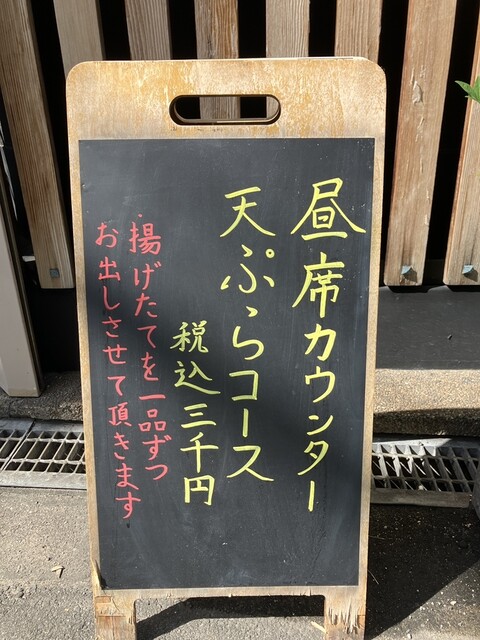 昼席カウンター
天ぷらコース
税込三千円
揚げたてを一品ずつ
お出しさせて頂きます